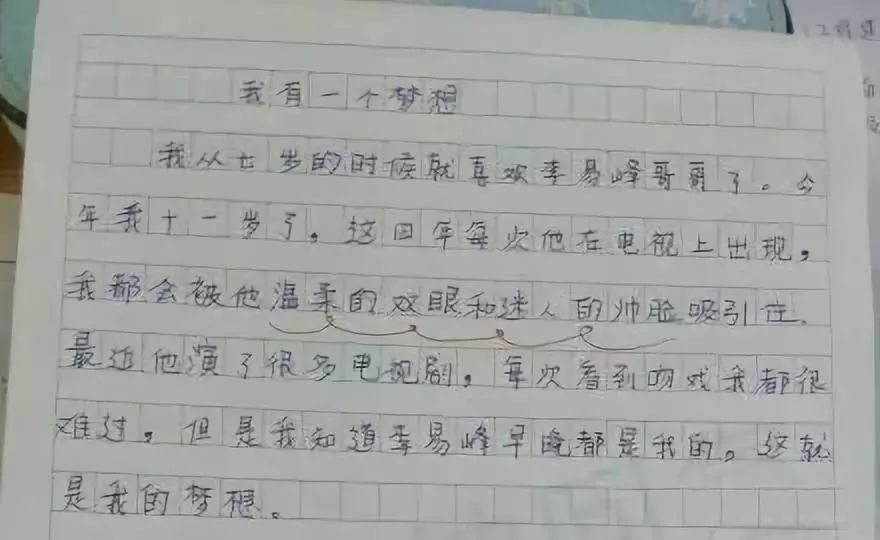 我有一个梦想
我从七岁的时候就喜欢李易峰哥哥了。今
年我十一岁了。这四年每次他在电视上出现，
我都会被他温柔的双眼和迷人的帅脸吸引住.
最近他演了很多电视剧，每次看到吻戏我都很
难过，但是我知道李易峰早晚都是我的。这就
是我的梦想。